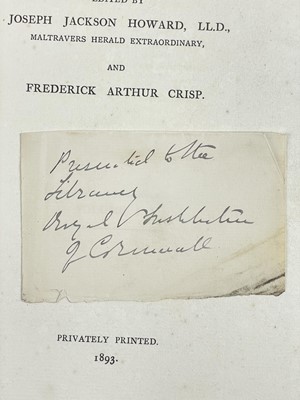 EDITED BY
JOSEPH JACKSON HOWARD, LL.D.,
MALTRAVERS HERALD EXTRAORDINARY,
AND
FREDERICK ARTHUR CRISP.
Presented to the
Library
Royal Institution
of Cornwall
PRIVATELY PRINTED.
1893.